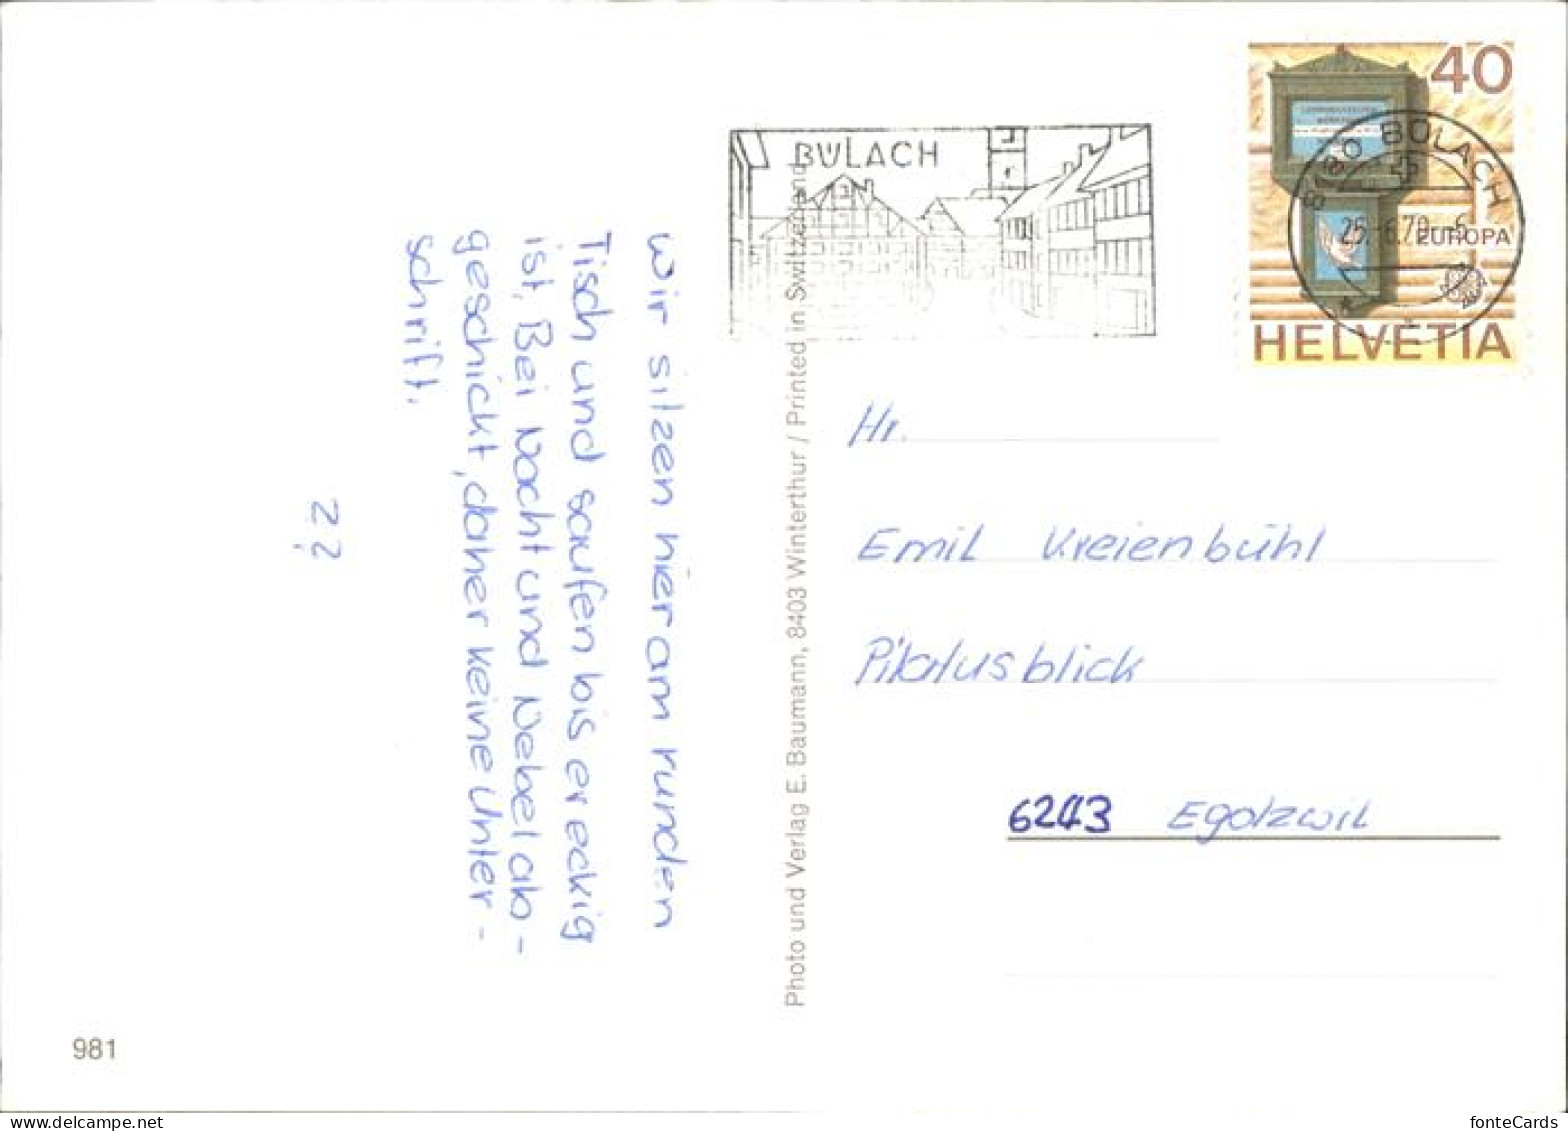 wir sitzen hier am runden
Tisch und saufen bis er eckig
ist, Bei Nacht und Nebel ab-
geschickt, daher keine Unter-
schrift.
? ?
981
Photo und Verlag E. Baumann, 8403 Winterthur / Printed in Switzerland
BÜLACH
40
8180 BÜLACH
25.-6.79-6
EUROPA
HELVETIA
Hr.
Emil Kreienbühl
Pilatusblick
6243 Egolzwil
fonteCards